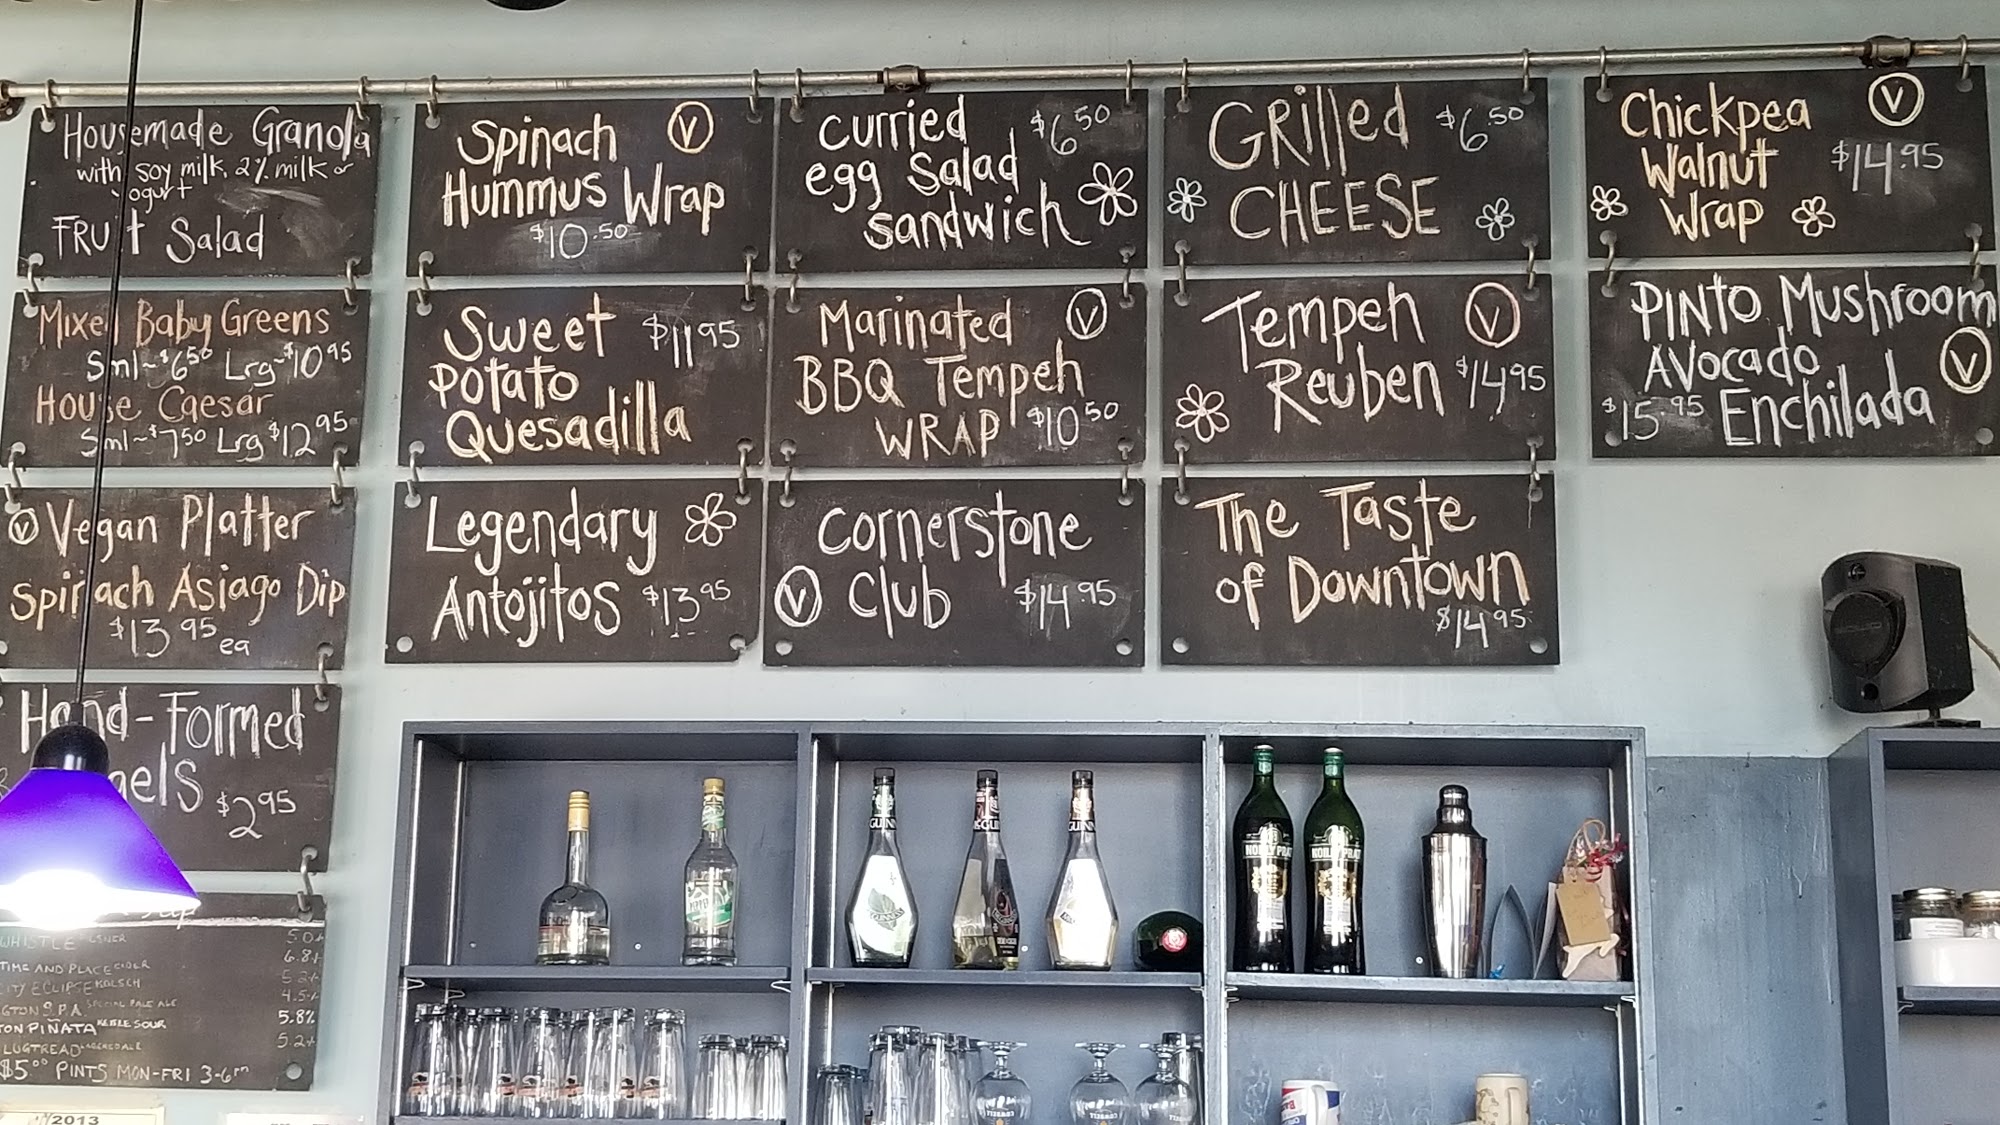 Housemade Granola
with soy milk, 2% milk or
yogurt
FRUIT Salad
Mixed Baby Greens
Sml~$6.50 Lrg~$10.95
House Caesar
Sml~$7.50 Lrg $12.95
V Vegan Platter
Spinach Asiago Dip
$13.95 ea
Hand-Formed
$2.95
WHISTLE PILSNER 5.0%
TIME AND PLACE CIDER 6.8%
CITY ECLIPSE KOLSCH 5.2%
S.P.A. SPECIAL PALE ALE 4.5%
PIÑATA KETTLE SOUR 5.8%
LUGTREAD LAGERED ALE 5.2%
$5.00 PINTS MON-FRI 3-6pm
2013
Spinach V
Hummus Wrap
$10.50
Sweet $11.95
Potato
Quesadilla
Legendary
Antojitos $13.95
Curried $6.50
egg Salad
sandwich
Marinated V
BBQ Tempeh
WRAP $10.50
Cornerstone
V Club $14.95
GRilled $6.50
CHEESE
Tempeh V
Reuben $14.95
The Taste
of Downtown
$14.95
Chickpea V
Walnut $14.95
Wrap
PINTO Mushroom
Avocado V
$15.95 Enchilada
McGUINNESS
NOILLY PRAT
NOILLY PRAT